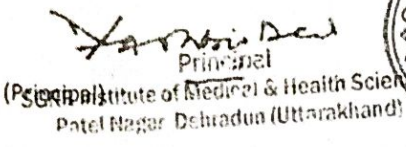 Principal
(Principal)
SGRR Institute of Medical & Health Scien
Patel Nagar Dehradun (Uttarakhand)